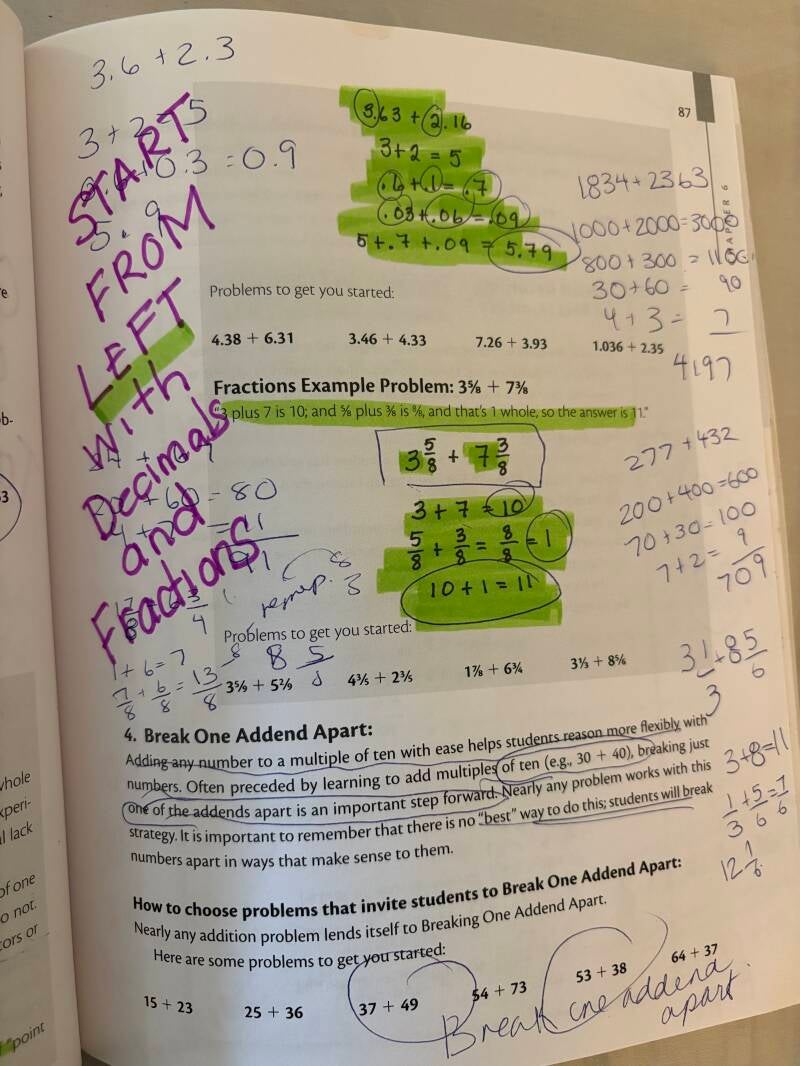 3.6 + 2.3
3 + 2 = 5
0.3 = 0.9
5.9
START
FROM
LEFT
With
Decimals
and
Fractions
87
CHAPTER 6
3.63 + 2.16
3 + 2 = 5
.6 + .1 = .7
.03 + .06 = .09
5 + .7 + .09 = 5.79
1834 + 2363
1000 + 2000 = 3000
800 + 300 = 1100
30 + 60 = 90
4 + 3 = 7
4197
Problems to get you started:
4.38 + 6.31 3.46 + 4.33 7.26 + 3.93 1.036 + 2.35
Fractions Example Problem: 3⅝ + 7⅜
"3 plus 7 is 10; and ⅝ plus ⅜ is 8/8, and that's 1 whole, so the answer is 11."
3 5/8 + 7 3/8
3 + 7 = 10
5/8 + 3/8 = 8/8 = 1
10 + 1 = 11
277 + 432
200 + 400 = 600
70 + 30 = 100
7 + 2 = 9
709
60 = 80
11
91
1 + 6 = 7
7/8 + 6/8 = 13/8
8 5/8
Problems to get you started:
3 5/9 + 5 2/9 4⅗ + 2⅗ 1⅞ + 6¾ 3⅓ + 8⅚
3 1/3 + 8 5/6
3 + 8 = 11
1/3 + 5/6 = 7/6
12 1/6
4. Break One Addend Apart:
Adding any number to a multiple of ten with ease helps students reason more flexibly with
numbers. Often preceded by learning to add multiples of ten (e.g., 30 + 40), breaking just
one of the addends apart is an important step forward. Nearly any problem works with this
strategy. It is important to remember that there is no "best" way to do this; students will break
numbers apart in ways that make sense to them.
How to choose problems that invite students to Break One Addend Apart:
Nearly any addition problem lends itself to Breaking One Addend Apart.
Here are some problems to get you started:
15 + 23 25 + 36 37 + 49 54 + 73 53 + 38 64 + 37
Break one addend
apart
whole
xperi-
l lack
of one
o not.
tors or
"point